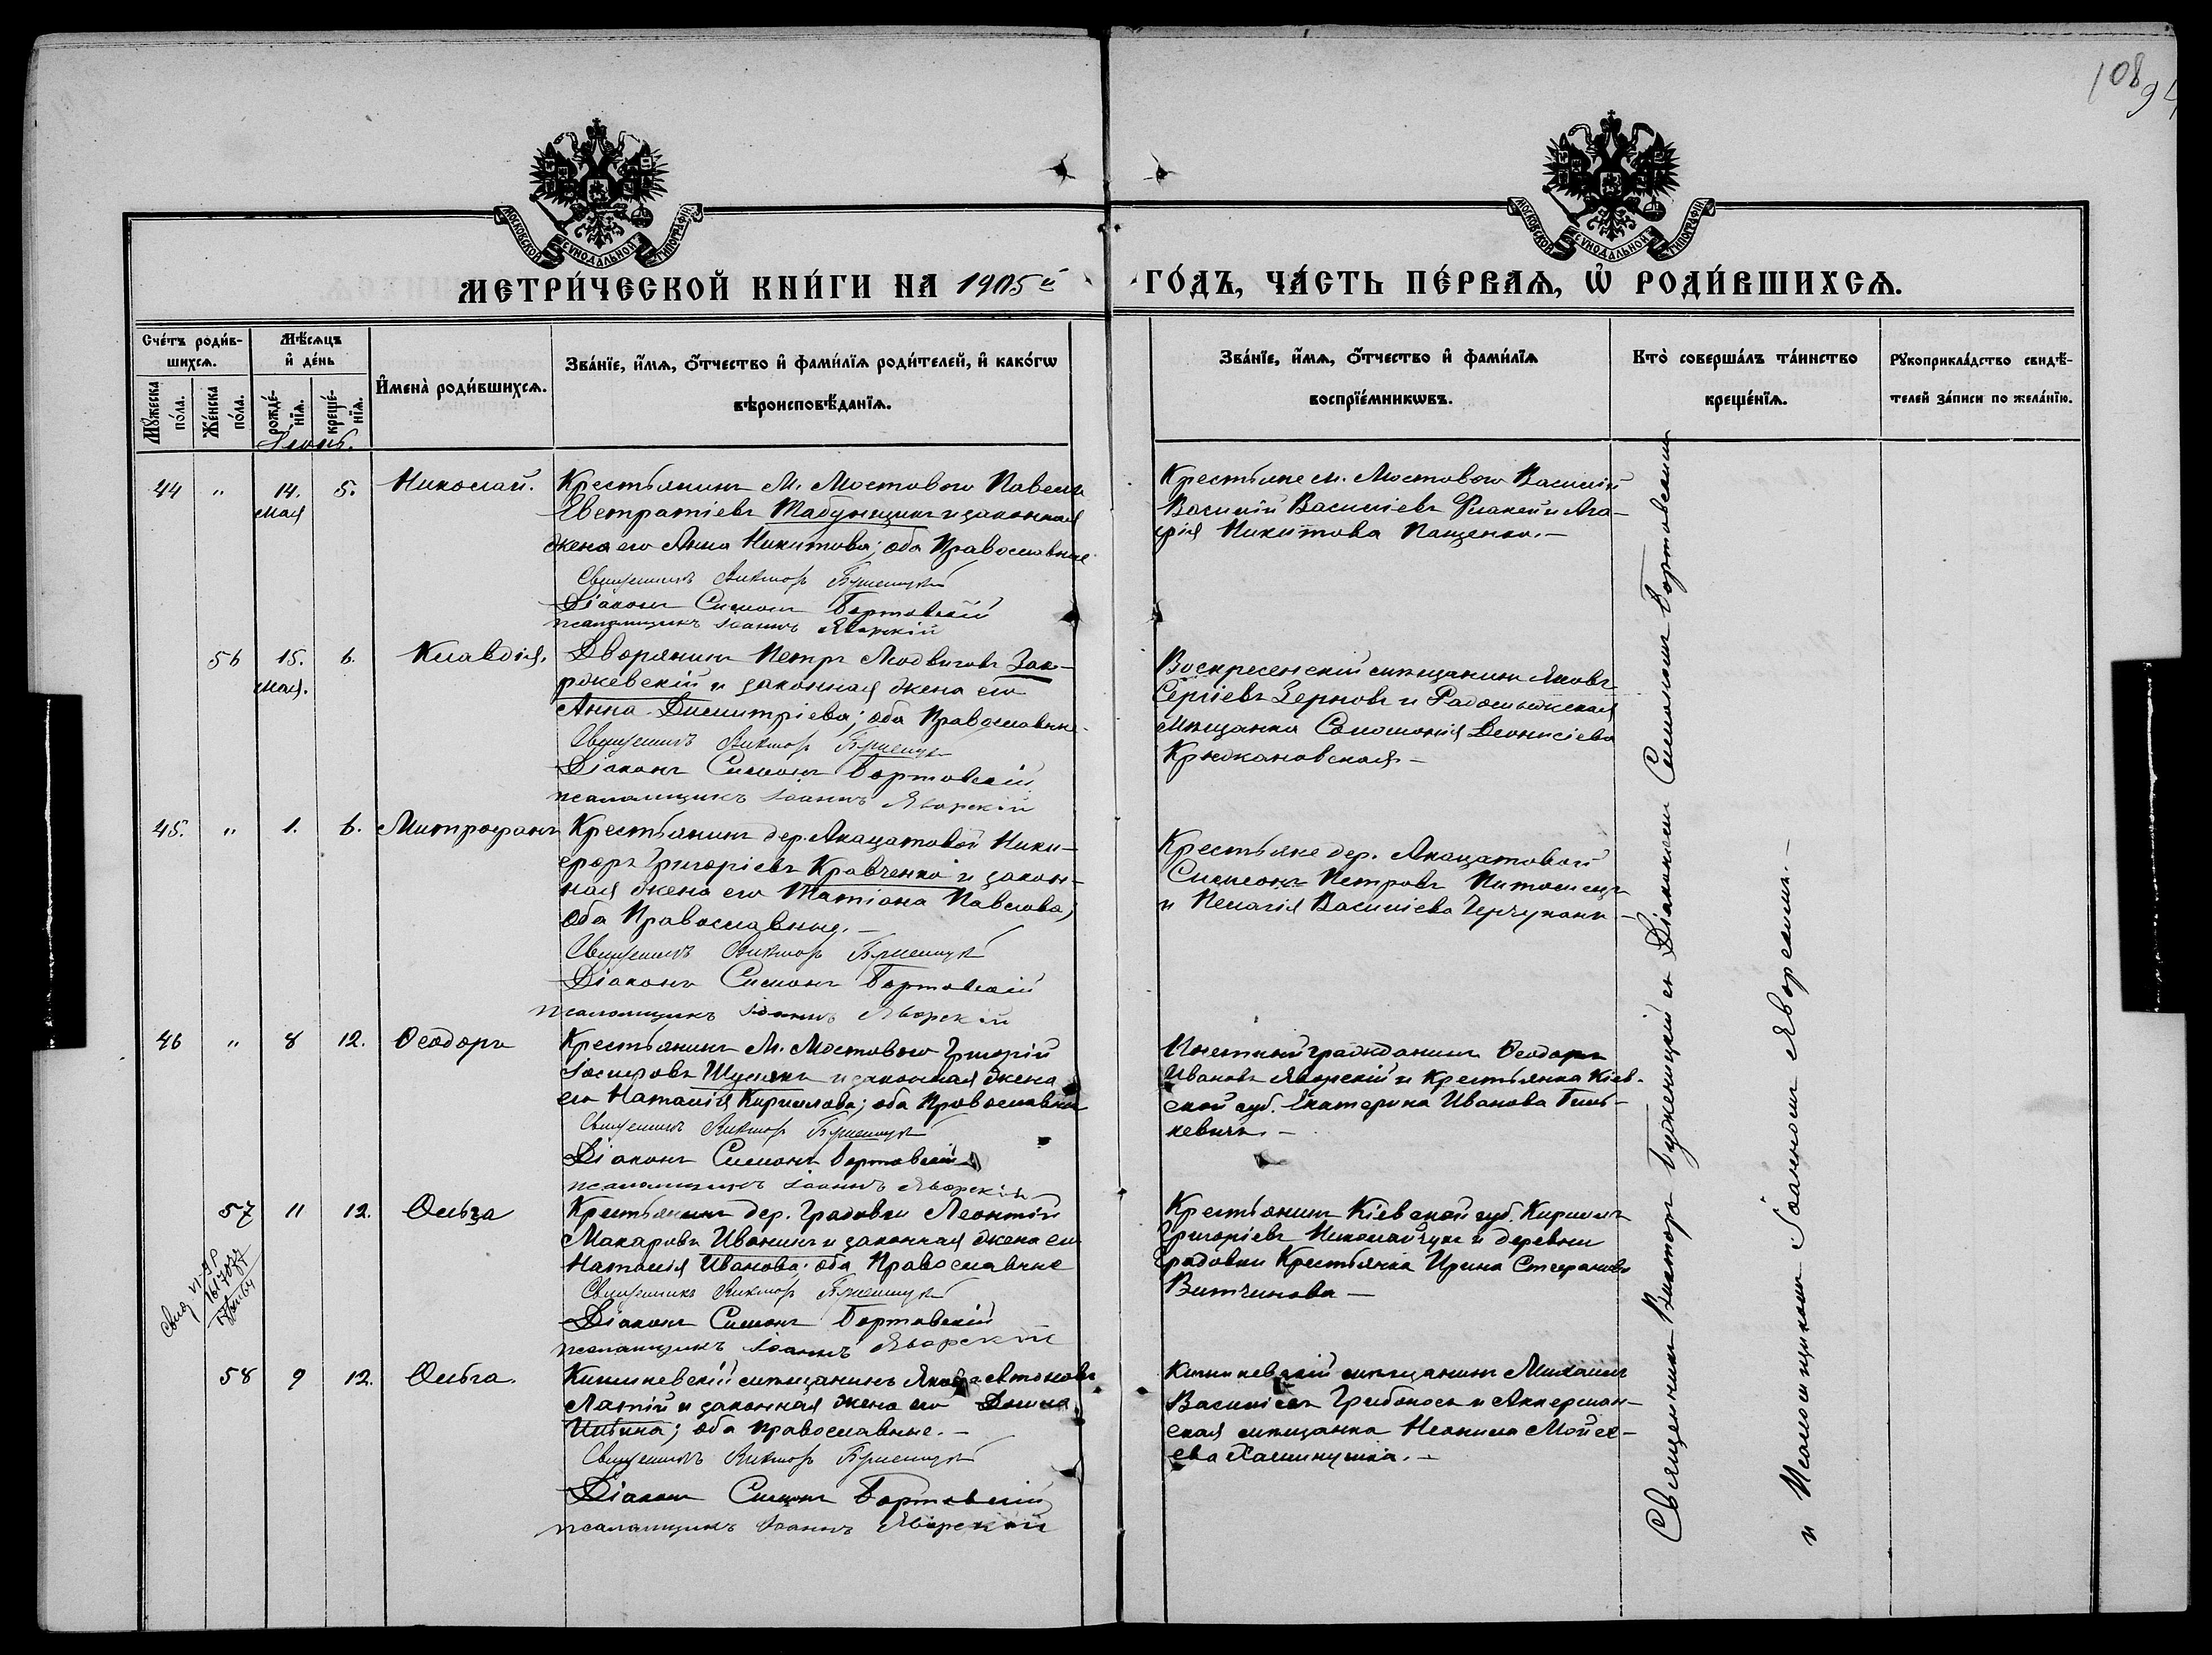 108
94
МОСКОВСКОЙ СѴНОДАЛЬНОЙ ТИПОГРАФІИ
МОСКОВСКОЙ СѴНОДАЛЬНОЙ ТИПОГРАФІИ
МЕТРИ́ЧЕСКОЙ КНИ́ГИ НА 1905й ГО́ДЪ, ЧА́СТЬ ПЕ́РВАЯ, Ѽ РОДИ́ВШИХСЯ.
Сче́тъ роди́в-
шихся.
Му́жеска
по́ла.
Же́нска
по́ла.
Мѣ́сяцъ
и҆ де́нь
рожде́-
нїя.
креще́-
нїя.
И҆мена̀ роди́вшихся.
Зва́нїе, и҆́мя, ѻ҆́тчество и҆ фами́лїя роди́телей, и҆ како́гѡ
вѣроисповѣ́данїя.
Зва́нїе, и҆́мя, ѻ҆́тчество и҆ фами́лїя
воспрїе́мникѡвъ.
Кто̀ соверша́лъ та́инство
креще́нїя.
Рꙋкоприкла́дство свидѣ́-
телей за́писи по жела́нїю.
Іюнь.
44 " 14. 5. Николай.
мая
Крестьянинъ м. Мостового Павелъ
Евстратіевъ Табунщикъ и законная
жена его Анна Никитова; оба Православные
Священникъ Викторъ
Діаконъ Симонъ Бортовскій
псаломщикъ Іоаннъ Яворскій
Крестьяне м. Мостового Василій
Василій Васильевъ и Ага-
фія Никитова Пащенко. -
56 15. 6. Клавдія.
мая.
Дворянинъ Петръ Людвиговъ Зак-
ржевскій и законная жена его
Анна Димитріева; оба Православные.
Священникъ Викторъ
Діаконъ Симонъ Бортовскій
псаломщикъ Іоаннъ Яворскій
Воскресенскій мѣщанинъ Яковъ
Сергіевъ Зерновъ и
мѣщанка Соломонія Діонисіева
Крыжановская -
45. " 1. 6. Митрофанъ
Крестьянинъ дер. Акацатовой Ники-
форъ Григоріевъ Кравченко и закон-
ная жена его Татіана Павлова;
оба Православные. -
Священникъ Викторъ
Діаконъ Симонъ Бортовскій
псаломщикъ Іоаннъ Яворскій
Крестьяне дер. Акацатовой
Симеонъ Петровъ
и Пелагія Васильева -
46 " 8 12. Ѳеодоръ
Крестьянинъ м. Мостового Григорій
Іосифовъ Шулякъ и законная жена
его Наталія Кириллова; оба Православные
Священникъ Викторъ
Діаконъ Симонъ Бортовскій
псаломщикъ Іоаннъ Яворскій
Почетный гражданинъ Ѳеодоръ
Ивановъ Яворскій и Крестьянка Кіев-
ской губ. Екатерина Иванова
кевичъ. -
57 11 12. Ольга
Крестьянинъ дер. Градовки Леонтій
Макаровъ Иванинъ и законная жена его
Наталія Иванова; оба Православные
Священникъ Викторъ
Діаконъ Симонъ Бортовскій
псаломщикъ Іоаннъ Яворскій
Крестьянинъ Кіевской губ. Кириллъ
Григоріевъ Николайчукъ и деревни
Градовки Крестьянка Ирина Стефанова
Витчинова -
58 9 12. Ольга.
Кишиневскій мѣщанинъ Яковъ Антоновъ
Латій и законная жена его Домна
Ильина; оба православные. -
Священникъ Викторъ
Діаконъ Симонъ Бортовскій
псаломщикъ Іоаннъ Яворскій
Кишиневскій мѣщанинъ Михаилъ
Васильевъ Грибоносъ и Аккерман-
ская мѣщанка Неонила Мойсе-
ева -
Священникъ Викторъ Буженицкій съ Діакономъ Симономъ Бортовскимъ
и Псаломщикомъ Іоанномъ Яворскимъ. -